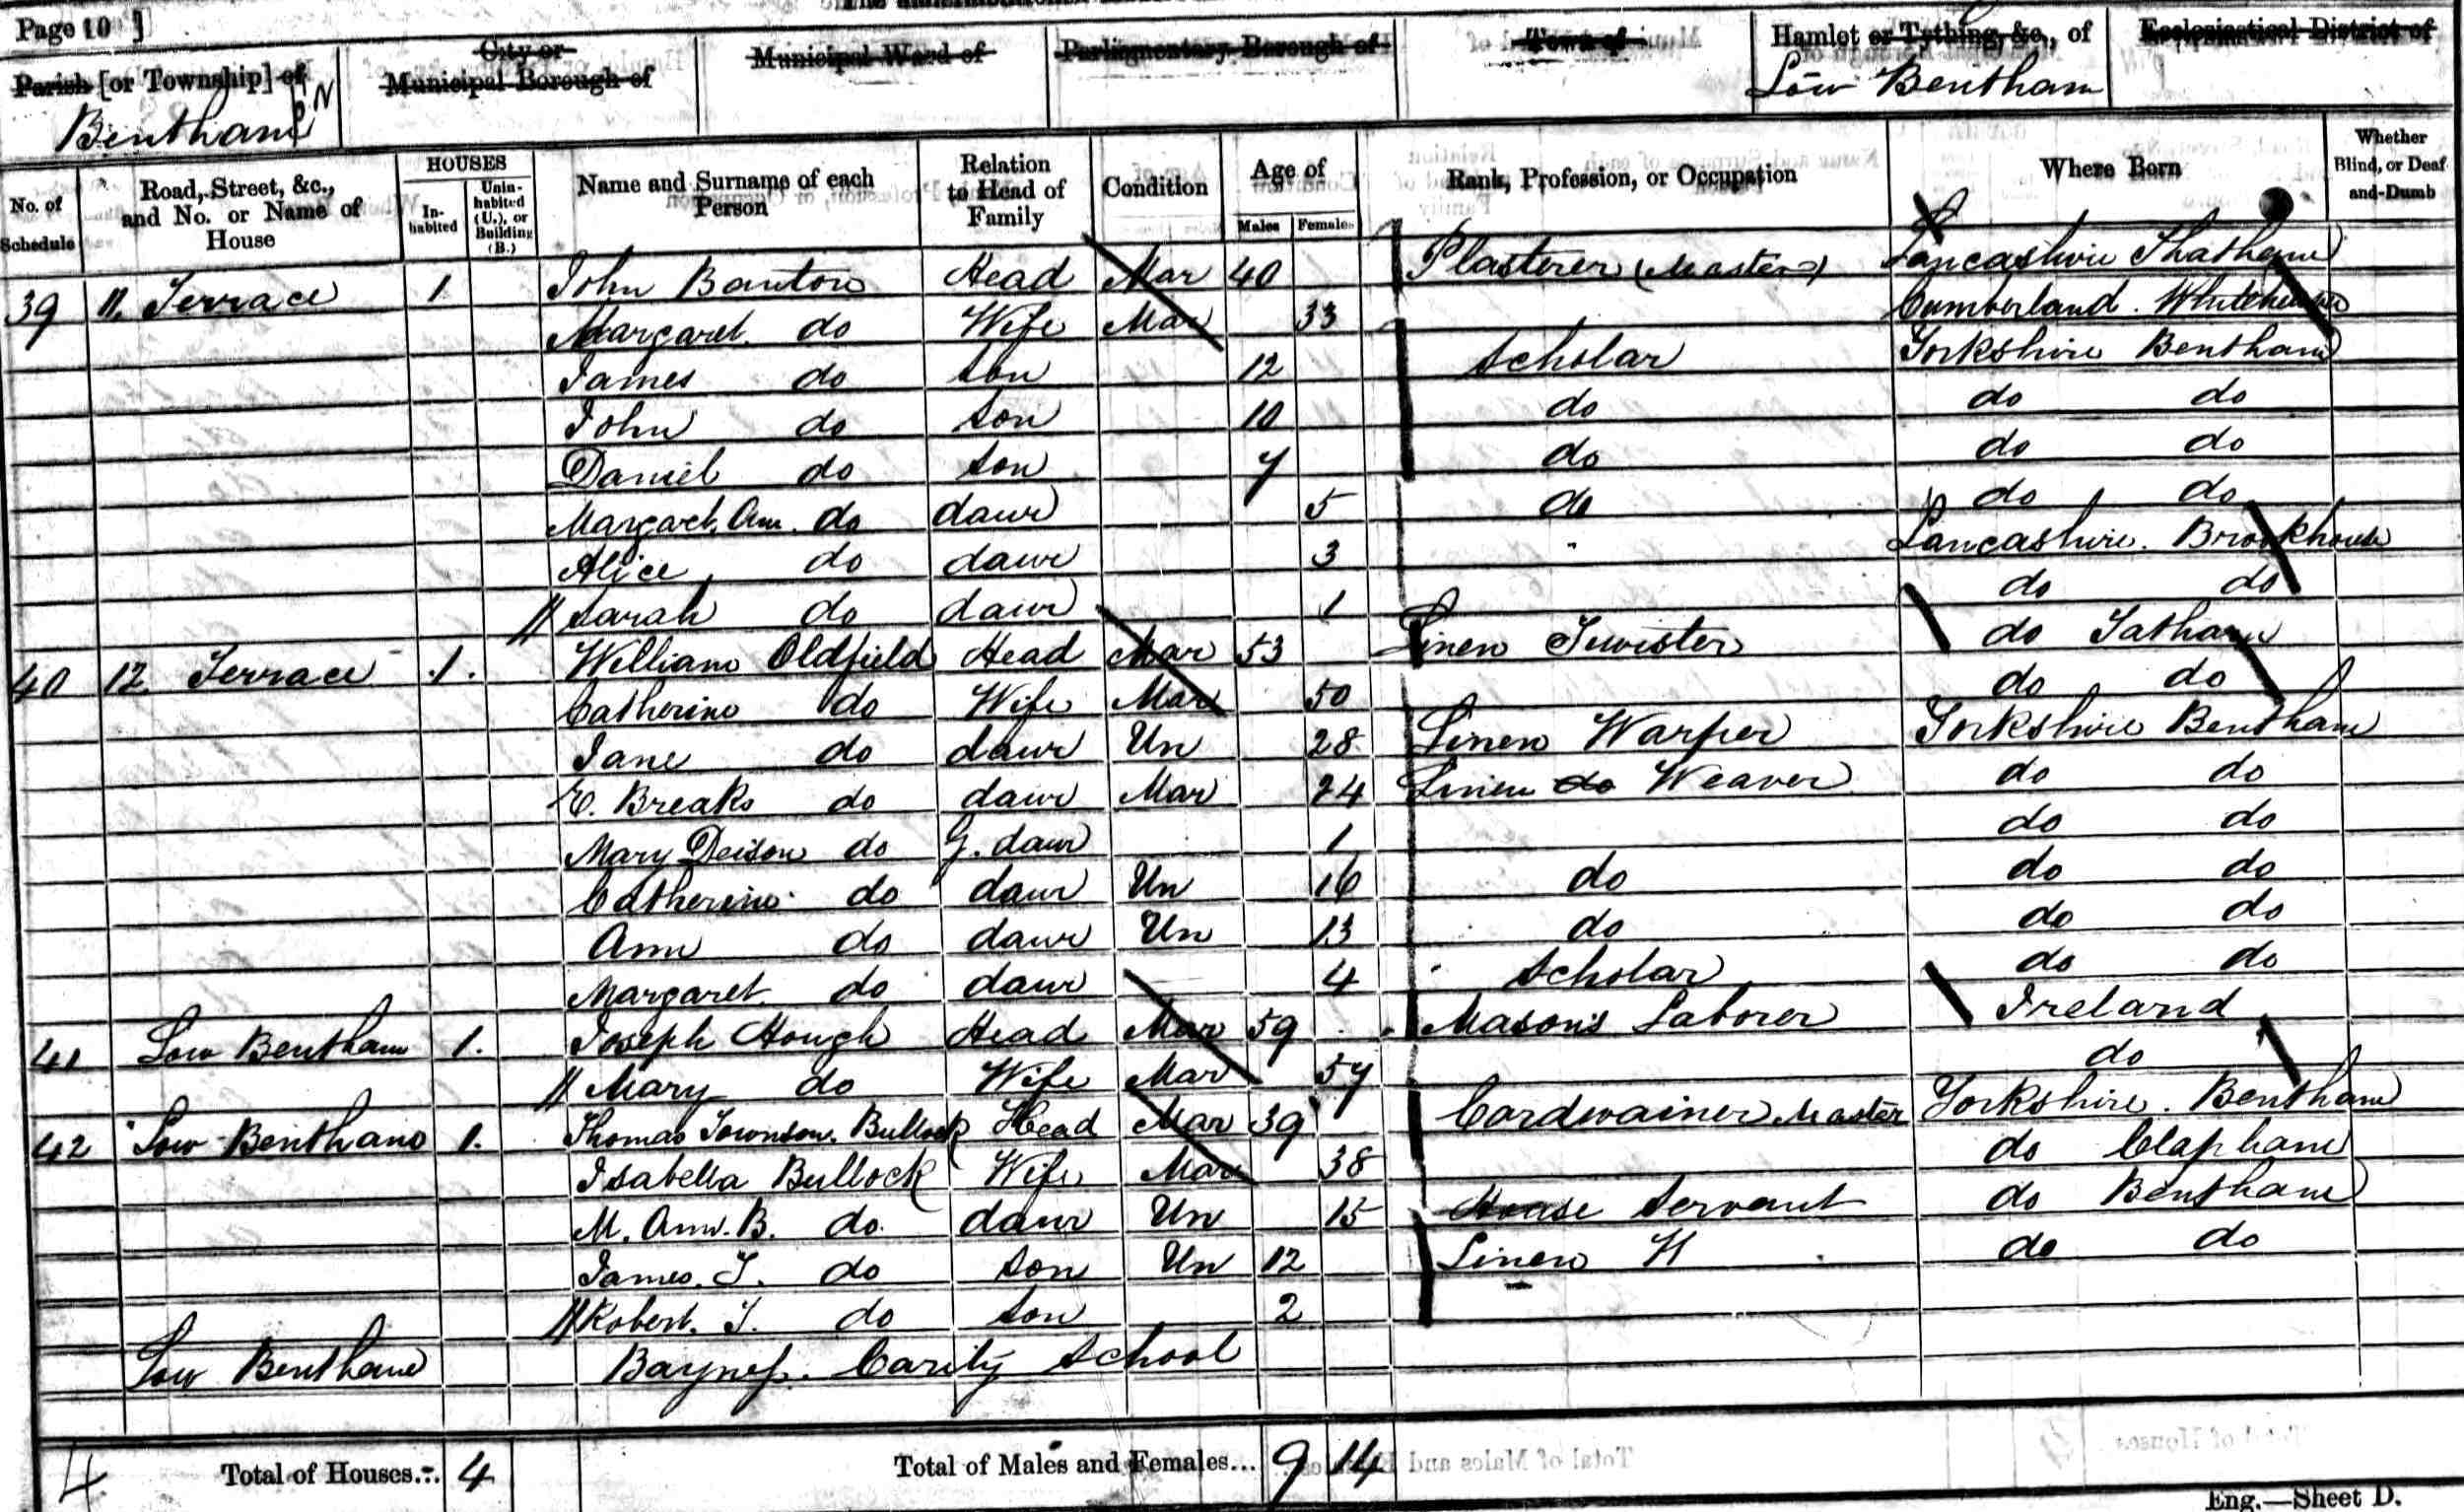 Page 10 ]
Parish [or Township] of
Bentham
City or
Municipal Borough of
Municipal Ward of
Parliamentary Borough of
Town of
Hamlet or Tything, &c., of
Low Bentham
Ecclesiastical District of
No. of Schedule | Road, Street, &c., and No. or Name of House | HOUSES Inhabited | Uninhabited (U.), or Building (B.) | Name and Surname of each Person | Relation to Head of Family | Condition | Age of Males | Females | Rank, Profession, or Occupation | Where Born | Whether Blind, or Deaf-and-Dumb
39 11. Terrace 1 John Banton Head Mar 40 Plasterer (Master) Lancashire Thatham
Margaret do Wife Mar 33 Cumberland. Whitehaven
James do Son 12 Scholar Yorkshire Bentham
John do Son 10 do do do
Daniel do Son 7 do do do
Margaret. Ann. do daur 5 do do do
Alice do daur 3 " Lancashire. Brookhouse
// Sarah do daur 1 do do
40 12 Terrace 1. William Oldfield Head Mar 53 Linen Twister do Tatham
Catherine do Wife Mar 50 do do
Jane do daur Un 28 Linen Warper Yorkshire Bentham
E. Breaks do daur Mar 24 Linen do Weaver do do
Mary do G. daur 1 do do
Catherine do daur Un 16 do do do
Ann do daur Un 13 do do do
Margaret do daur 4 Scholar do do
41 Low Bentham 1. Joseph Hough Head Mar 59 Masons Laborer Ireland
// Mary do Wife Mar 57 do
42 Low Bentham 1. Thomas Townson. Bullock Head Mar 39 Cordwainer Master Yorkshire. Bentham
Isabella Bullock Wife Mar 38 do Clapham
M. Ann. B. do daur Un 15 House Servant do Bentham
James. T. do Son Un 12 Linen H do do
// Robert. T. do Son 2
Low Bentham Baynes. Carity School
4 Total of Houses... 4 Total of Males and Females... 9 14
Eng.—Sheet D.